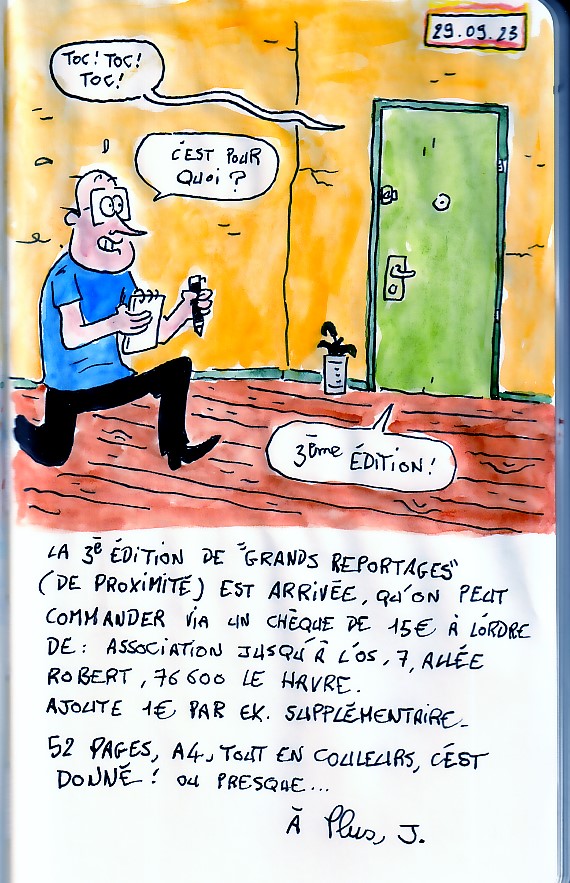 29.09.23
TOC! TOC!
TOC!
C'EST POUR
QUOI ?
3ème ÉDITION !
LA 3e ÉDITION DE "GRANDS REPORTAGES"
(DE PROXIMITÉ) EST ARRIVÉE, QU'ON PEUT
COMMANDER VIA UN CHÈQUE DE 15€ À L'ORDRE
DE : ASSOCIATION JUSQU'À L'OS, 7, ALLÉE
ROBERT, 76600 LE HAVRE.
AJOUTE 1€ PAR EX. SUPPLÉMENTAIRE.
52 PAGES, A4, TOUT EN COULEURS, C'EST
DONNÉ ! OU PRESQUE...
À Plus, J.